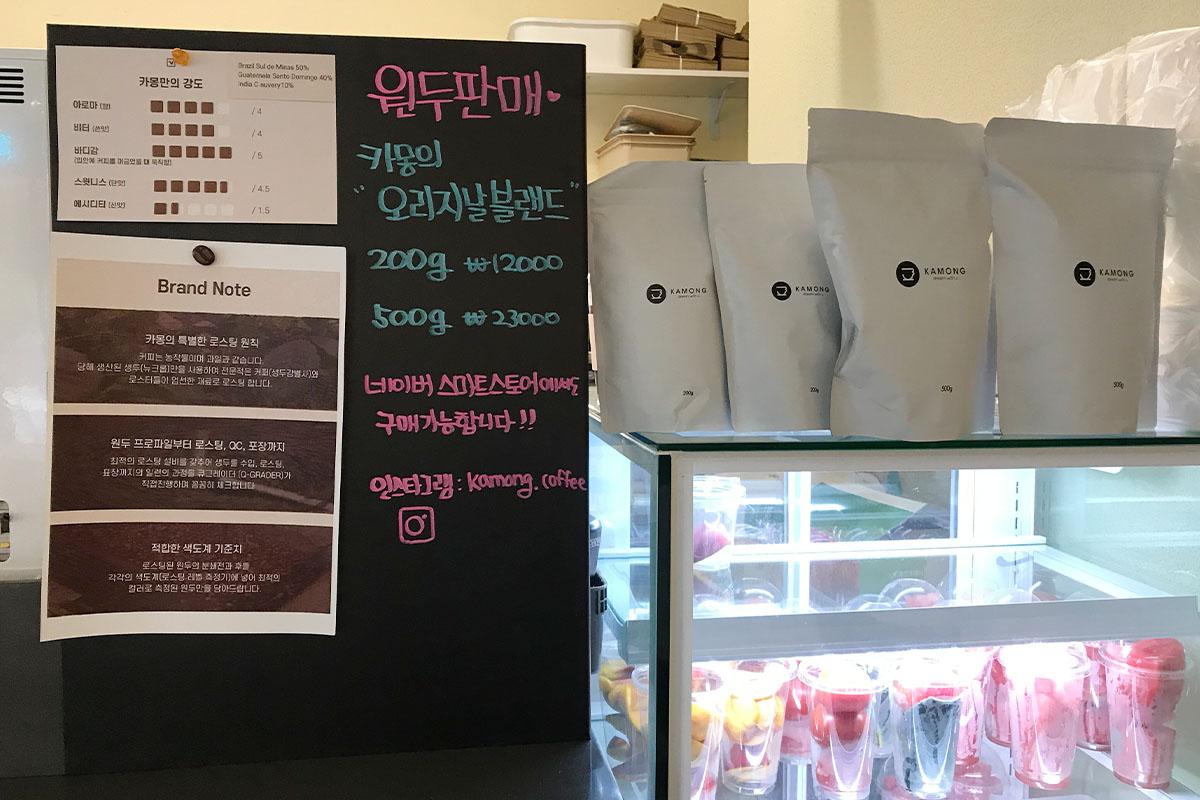 카몽만의 강도
Brazil Sul de Minas 50%
Guatemala Santo Domingo 40%
India C auvery10%
아로마 (향) / 4
비터 (쓴맛) / 4
바디감 / 5
(입안에 커피를 머금었을 때 묵직함)
스윗니스 (단맛) / 4.5
에시디티 (신맛) / 1.5
Brand Note
카몽의 특별한 로스팅 원칙
커피는 농작물이며 과일과 같습니다.
당해 생산된 생두(뉴크롭)만을 사용하여 전문적은 커퍼(생두감별사)와
로스터들이 엄선한 재료로 로스팅 합니다.
원두 프로파일부터 로스팅, QC, 포장까지
최적의 로스팅 설비를 갖추어 생두를 수입, 로스팅,
포장까지의 일련의 과정을 큐그레이더 (Q-GRADER)가
직접진행하며 꼼꼼히 체크합니다
적합한 색도계 기준치
로스팅된 원두의 분쇄전과 후를
각각의 색도계(로스팅 레벨 측정기)에 넣어 최적의
컬러로 측정된 원두만을 담아드립니다.
원두판매
카몽의
"오리지날블랜드"
200g ₩12000
500g ₩23000
네이버 스마트스토어에서도
구매가능합니다!!
인스타그램 : kamong.coffee
KAMONG
200g
KAMONG
200g
KAMONG
500g
KAMONG
500g